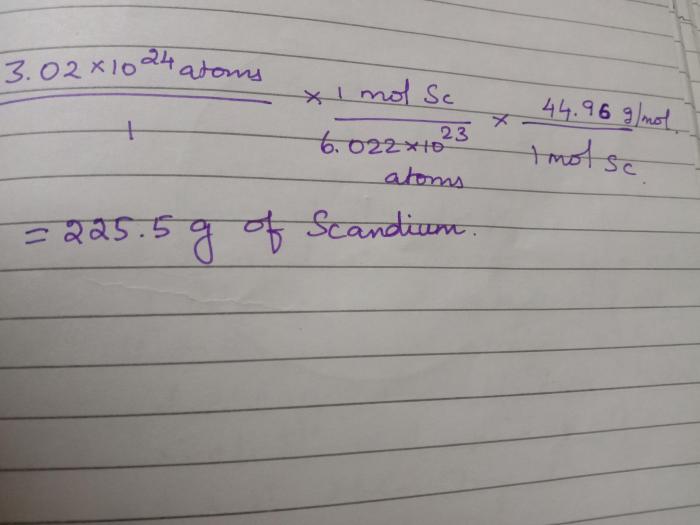 3.02 × 10²⁴ atoms / 1 × 1 mol Sc / 6.022 × 10²³ atoms × 44.96 g/mol. / 1 mol Sc.
= 225.5 g of Scandium.